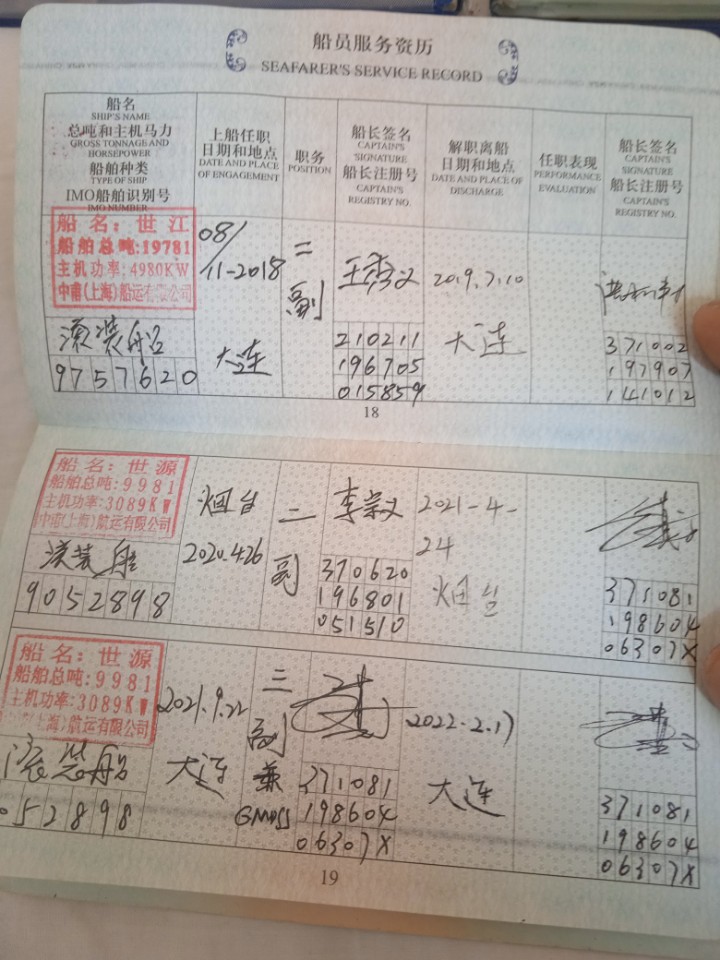 船员服务资历
SEAFARER'S SERVICE RECORD
船名
SHIP'S NAME
总吨和主机马力
GROSS TONNAGE AND
HORSEPOWER
船舶种类
TYPE OF SHIP
IMO船舶识别号
IMO NUMBER
上船任职
日期和地点
DATE AND PLACE
OF ENGAGEMENT
职务
POSITION
船长签名
CAPTAIN'S
SIGNATURE
船长注册号
CAPTAIN'S
REGISTRY NO.
解职离船
日期和地点
DATE AND PLACE OF
DISCHARGE
任职表现
PERFORMANCE
EVALUATION
船长签名
CAPTAIN'S
SIGNATURE
船长注册号
CAPTAIN'S
REGISTRY NO.
船名：世江
船舶总吨:19781
主机功率:4980KW
中甫(上海)船运有限公司
滚装船
9757620
08/
11-2018
大连
二
副
210211
196705
015859
2019.7.10
大连
371002
197907
141012
18
船名：世源
船舶总吨:9981
主机功率:3089KW
中甫(上海)航运有限公司
滚装船
9052898
烟台
2020.4.26
二
副
李崇义
370620
196801
051510
2021-4-
24
烟台
371081
198604
06307X
船名：世源
船舶总吨:9981
主机功率:3089KW
(上海)航运有限公司
滚装船
052898
2021.9.22
大连
三
副
兼
GMDSS
371081
198604
06307X
2022.2.17
大连
371081
198604
06307X
19